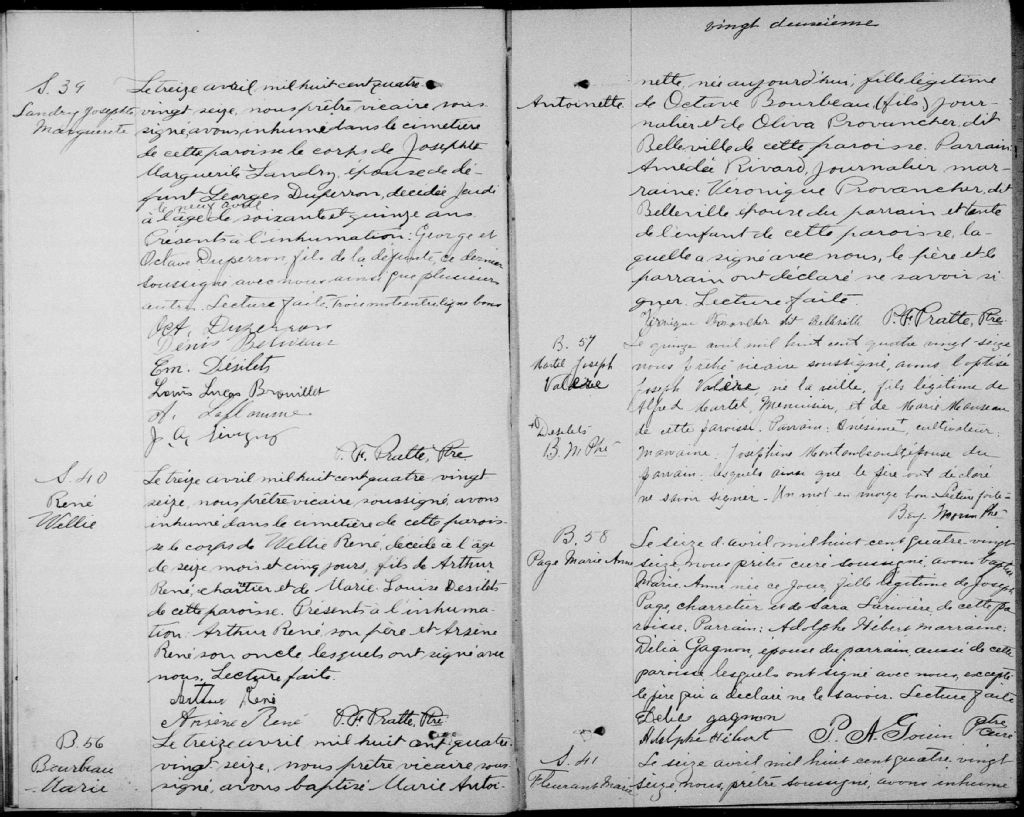 S. 39
Landry Josephte
Marguerite
Le treize avril mil huit cent quatre-
vingt seize, nous prêtre vicaire, sous
signé, avons, inhumé dans le cimetière
de cette paroisse le corps de Josephte
Marguerite Landry, épouse de dé-
funt Georges Duperron, décédée Jeudi
le neuf avril
à l'âge de soixante et quinze ans
Présents à l'inhumation: George et
Octave Duperron fils de la défunte, ce dernier
soussigné avec nous ainsi que plusieurs
autres. Lecture faite, trois mots entreligne bons
Oct. Duperron
Denis
Em. Désilets
Louis Lucas Brouillet
Laflamme
J. A. Sévigny
P. F. Pratte, Ptre
S. 40
René
Wellie
Le treize avril mil huit cent quatre vingt
seize, nous prêtre vicaire, soussigné, avons
inhumé dans le cimetière de cette parois-
se le corps de Wellie René, décédé à l'âge
de seize mois et cinq jours, fils de Arthur
René, charretier et de Marie Louise Desilets
de cette paroisse. Présents à l'inhuma-
tion: Arthur René, son père et Arsène
René son oncle lesquels ont signé avec
nous. Lecture faite.
Arthur René
Arsène René P. F. Pratte, Ptre
B. 56
Bourbeau
Marie
Le treize avril mil huit cent quatre-
vingt seize, nous prêtre vicaire, sous
signé, avons baptisé Marie Antoi-
vingt deuxième
Antoinette
nette, née aujourd'hui, fille légitime
de Octave Bourbeau (fils) Jour-
nalier et de Oliva Provancher, dit
Belleville de cette paroisse. Parrain:
Amédée Rivard, Journalier, mar-
raine: Véronique Provancher, dit
Belleville épouse du parrain et tante
de l'enfant de cette paroisse, la-
quelle a signé avec nous, le père et le
parrain ont déclaré ne savoir si
gner. Lecture faite
Provancher dit Belleville P. F. Pratte, Ptre
B. 57
Martel Joseph
Valère
Le quinze avril mil huit cent quatre vingt-seize
nous prêtre vicaire soussigné, avons baptisé
Joseph Valère né la veille, fils légitime de
Alfred Martel, Menuisier, et de Marie Manseau
+ Desilets
B. M Ptre
de cette paroisse. Parrain: Onésime +, cultivateur;
marraine: Josephine Montambeault épouse du
parrain, lesquels ainsi que le père ont déclaré
ne savoir signer - Un mot en marge bon. Lecture faite -
Ptre
B. 58
Page Marie Anna
Le seize d'avril mil huit cent quatre-vingt
seize, nous prêtre curé soussigné, avons baptisé
Marie Anna née ce Jour, fille légitime de Joseph
Page, charretier et de Sara Larivière de cette pa
roisse, Parrain: Adolphe Hébert marraine:
Délia Gagnon, épouse du parrain, aussi de cette
paroisse lesquels ont signé avec nous, excepté
le père qui a déclaré ne le savoir. Lecture faite
gagnon
Adolphe Hébert P. A. Gouin Ptre
curé
S. 41
Fleurant Marie
Le seize avril mil huit cent quatre, vingt
seize, nous, prêtre soussigné, avons inhumé